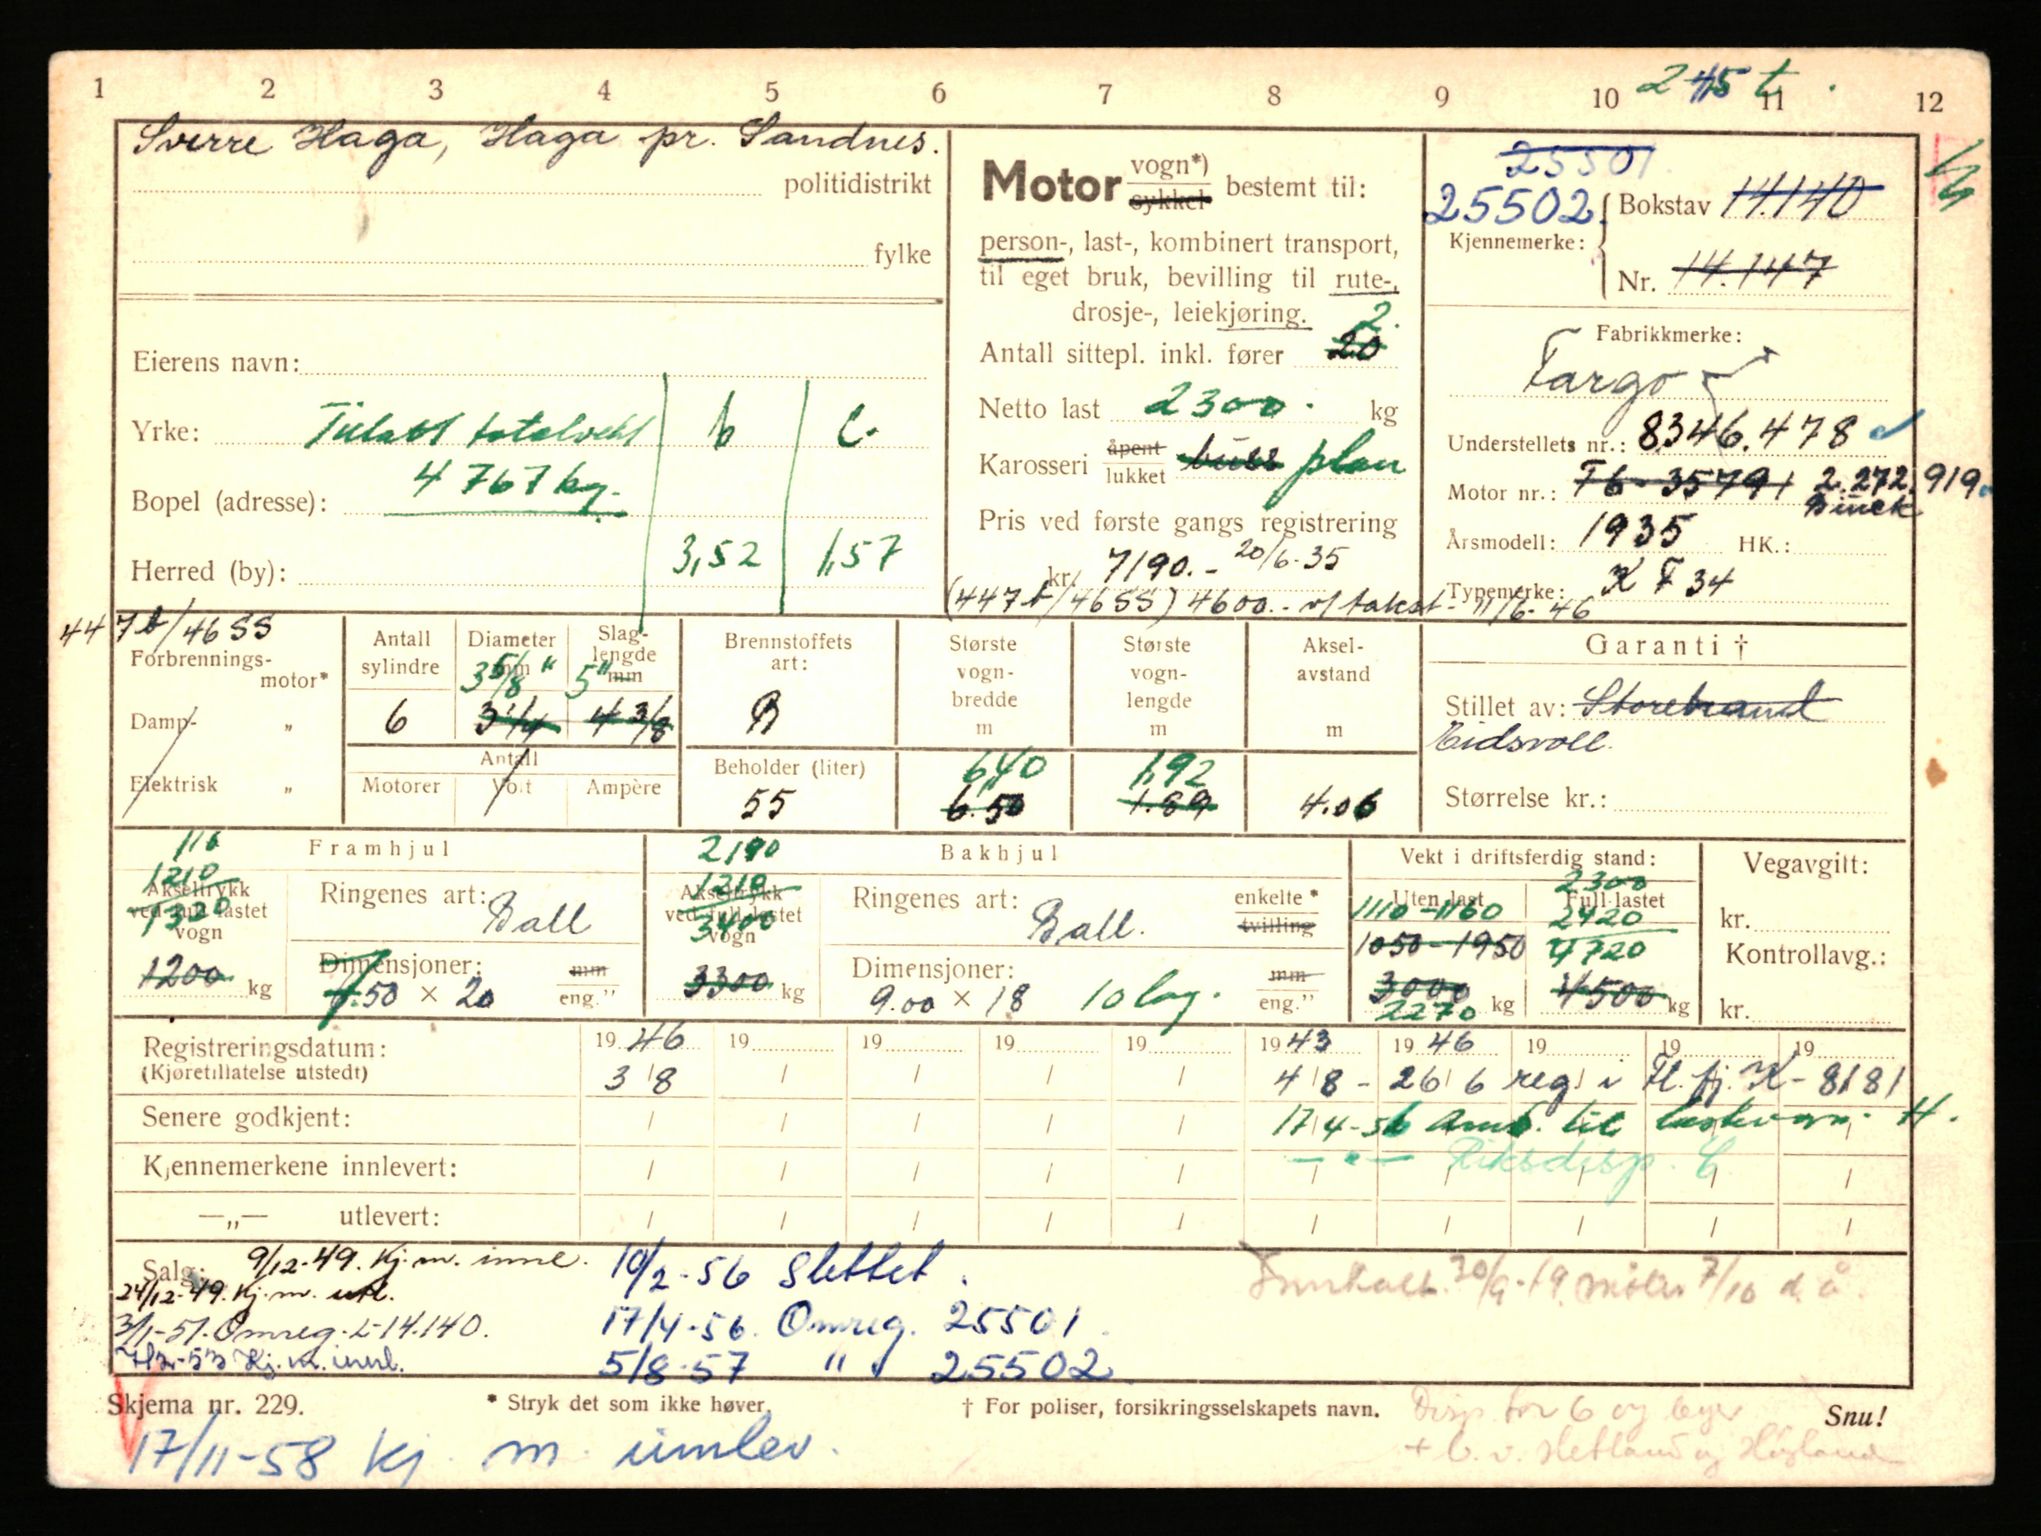 1 2 3 4 5 6 7 8 9 10 11 12
245 t.
Sverre Haga, Haga pr. Sandnes.
politidistrikt
fylke
Eierens navn:
Yrke: Tillatt totalvekt b c.
Bopel (adresse): 4767 kg.
Herred (by): 3,52 1,57
Motor vogn*) sykkel bestemt til:
person-, last-, kombinert transport,
til eget bruk, bevilling til rute-,
drosje-, leiekjøring.
Antall sittepl. inkl. fører 20 2.
Netto last 2300. kg
Karosseri åpent lukket buss plan
Pris ved første gangs registrering
kr. 7190.- 20/6-35
(447 b/46 SS) 4600.- v/takst- 11/6-46
25501
25502
Kjennemerke: Bokstav 14.140
Nr. 14.147
Fabrikkmerke:
Fargo
Understellets nr.: 8346.478
Motor nr.: T6-35791 2.272.919
Buick
Årsmodell: 1935 HK.:
Typemerke: K F 34
447 b/46 SS
Forbrennings-
motor*
Damp- „
Elektrisk „
Antall sylindre
6
Diameter mm
3 5/8 "
3 1/4
Slag-
lengde mm
5"
4 3/8
Antall
Motorer Volt Ampère
Brennstoffets
art:
B
Beholder (liter)
55
Største
vogn-
bredde
m
6,40
6.50
Største
vogn-
lengde
m
1,92
1.89
Aksel-
avstand
m
4.06
Garanti †
Stillet av: Storebrand
Eidsvoll.
Størrelse kr.:
Framhjul
1210
1320
Akseltrykk
ved full lastet
vogn
1200 kg
Ringenes art: Ball
Dimensjoner: mm
7.50 × 20 eng."
Bakhjul
2190
1210
3400
Akseltrykk
ved full lastet
vogn
3300 kg
Ringenes art: Ball. enkelte*
tvilling
Dimensjoner: mm
9.00 × 18 10 lag. eng."
Vekt i driftsferdig stand:
Uten last
1110-1160
1050-1950
3000 kg
2270
Full lastet
2300
2420
4720
4500 kg
Vegavgift:
kr.
Kontrollavg.:
kr.
Registreringsdatum: 19 46 19 19 19 19 19 43 19 46 19 19 19
(Kjøretillatelse utstedt) 3/8 4/8 - 26/6 reg. i K-8181
Senere godkjent: 17/4-56 til lastvogn. H.
Kjennemerkene innlevert: Riksdisp.
—„— utlevert:
Salg: 9/12-49. Kj.m. innl.
24/12-49. Kj.m. utl.
3/1-51. Omreg. L-14.140.
Kj.m. innl.
10/2-56 Slettet.
17/4-56. Omreg. 25501.
5/8-57 " 25502.
Innkalt. 30/9-
Skjema nr. 229.
* Stryk det som ikke høver.
† For poliser, forsikringsselskapets navn.
Snu!
Disp for 6 og
Hetland og Høyland
17/11-58 kj. m. innlev.